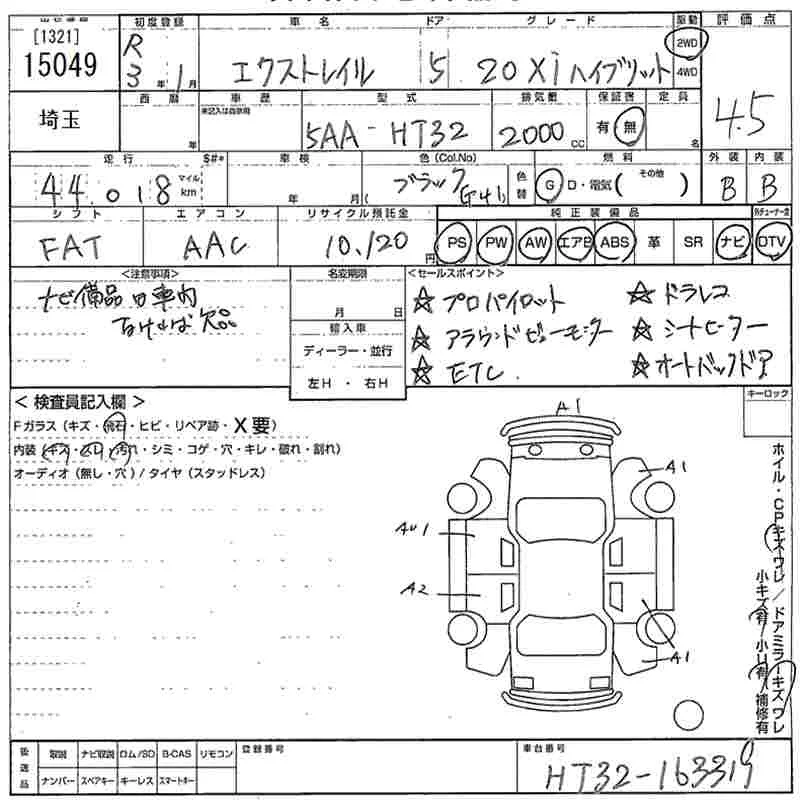 [1321]
15049
埼玉
初度登録
R
3年1月
車名
エクストレイル
ドア
5
グレード
20Xi ハイブリット
駆動
2WD
4WD
評価点
4.5
西暦
年
車歴
型式
5AA-HT32
排気量
2000cc
保証書
有 無
定員
名
走行
S#*
44.018
マイル
km
車検
年 月(
色(Col.No)
ブラック
色替
燃料
G D・電気( その他 )
外装
B
内装
B
シフト
FAT
エアコン
AAC
リサイクル預託金
10,120円
純正装備品
PS PW AW エアB ABS 革 SR ナビ
DTV
<注意事項>
ナビ備品は車内
なければ欠品
名変期限
月 日
輸入車
ディーラー・並行
左H ・ 右H
<セールスポイント>
☆プロパイロット ☆ドラレコ
☆アラウンドビューモニター ☆シートヒーター
☆ETC. ☆オートバックドア
<検査員記入欄>
Fガラス(キズ・飛石・ヒビ・リペア跡・X要)
内装(キズ・スリ・汚れ・シミ・コゲ・穴・キレ・破れ・割れ)
オーディオ(無し・穴)/タイヤ(スタッドレス)
キーロック
A1
A1
AU1
A2
A1
ホイル・CPキズワレ/ドアミラーキズワレ
小キズ有/小U有/補修有
後送品
取説 ナビ取説 ロム/SD B-CAS リモコン
ナンバー スペアキー キーレス スマートキー
登録番号
車台番号
HT32-163319